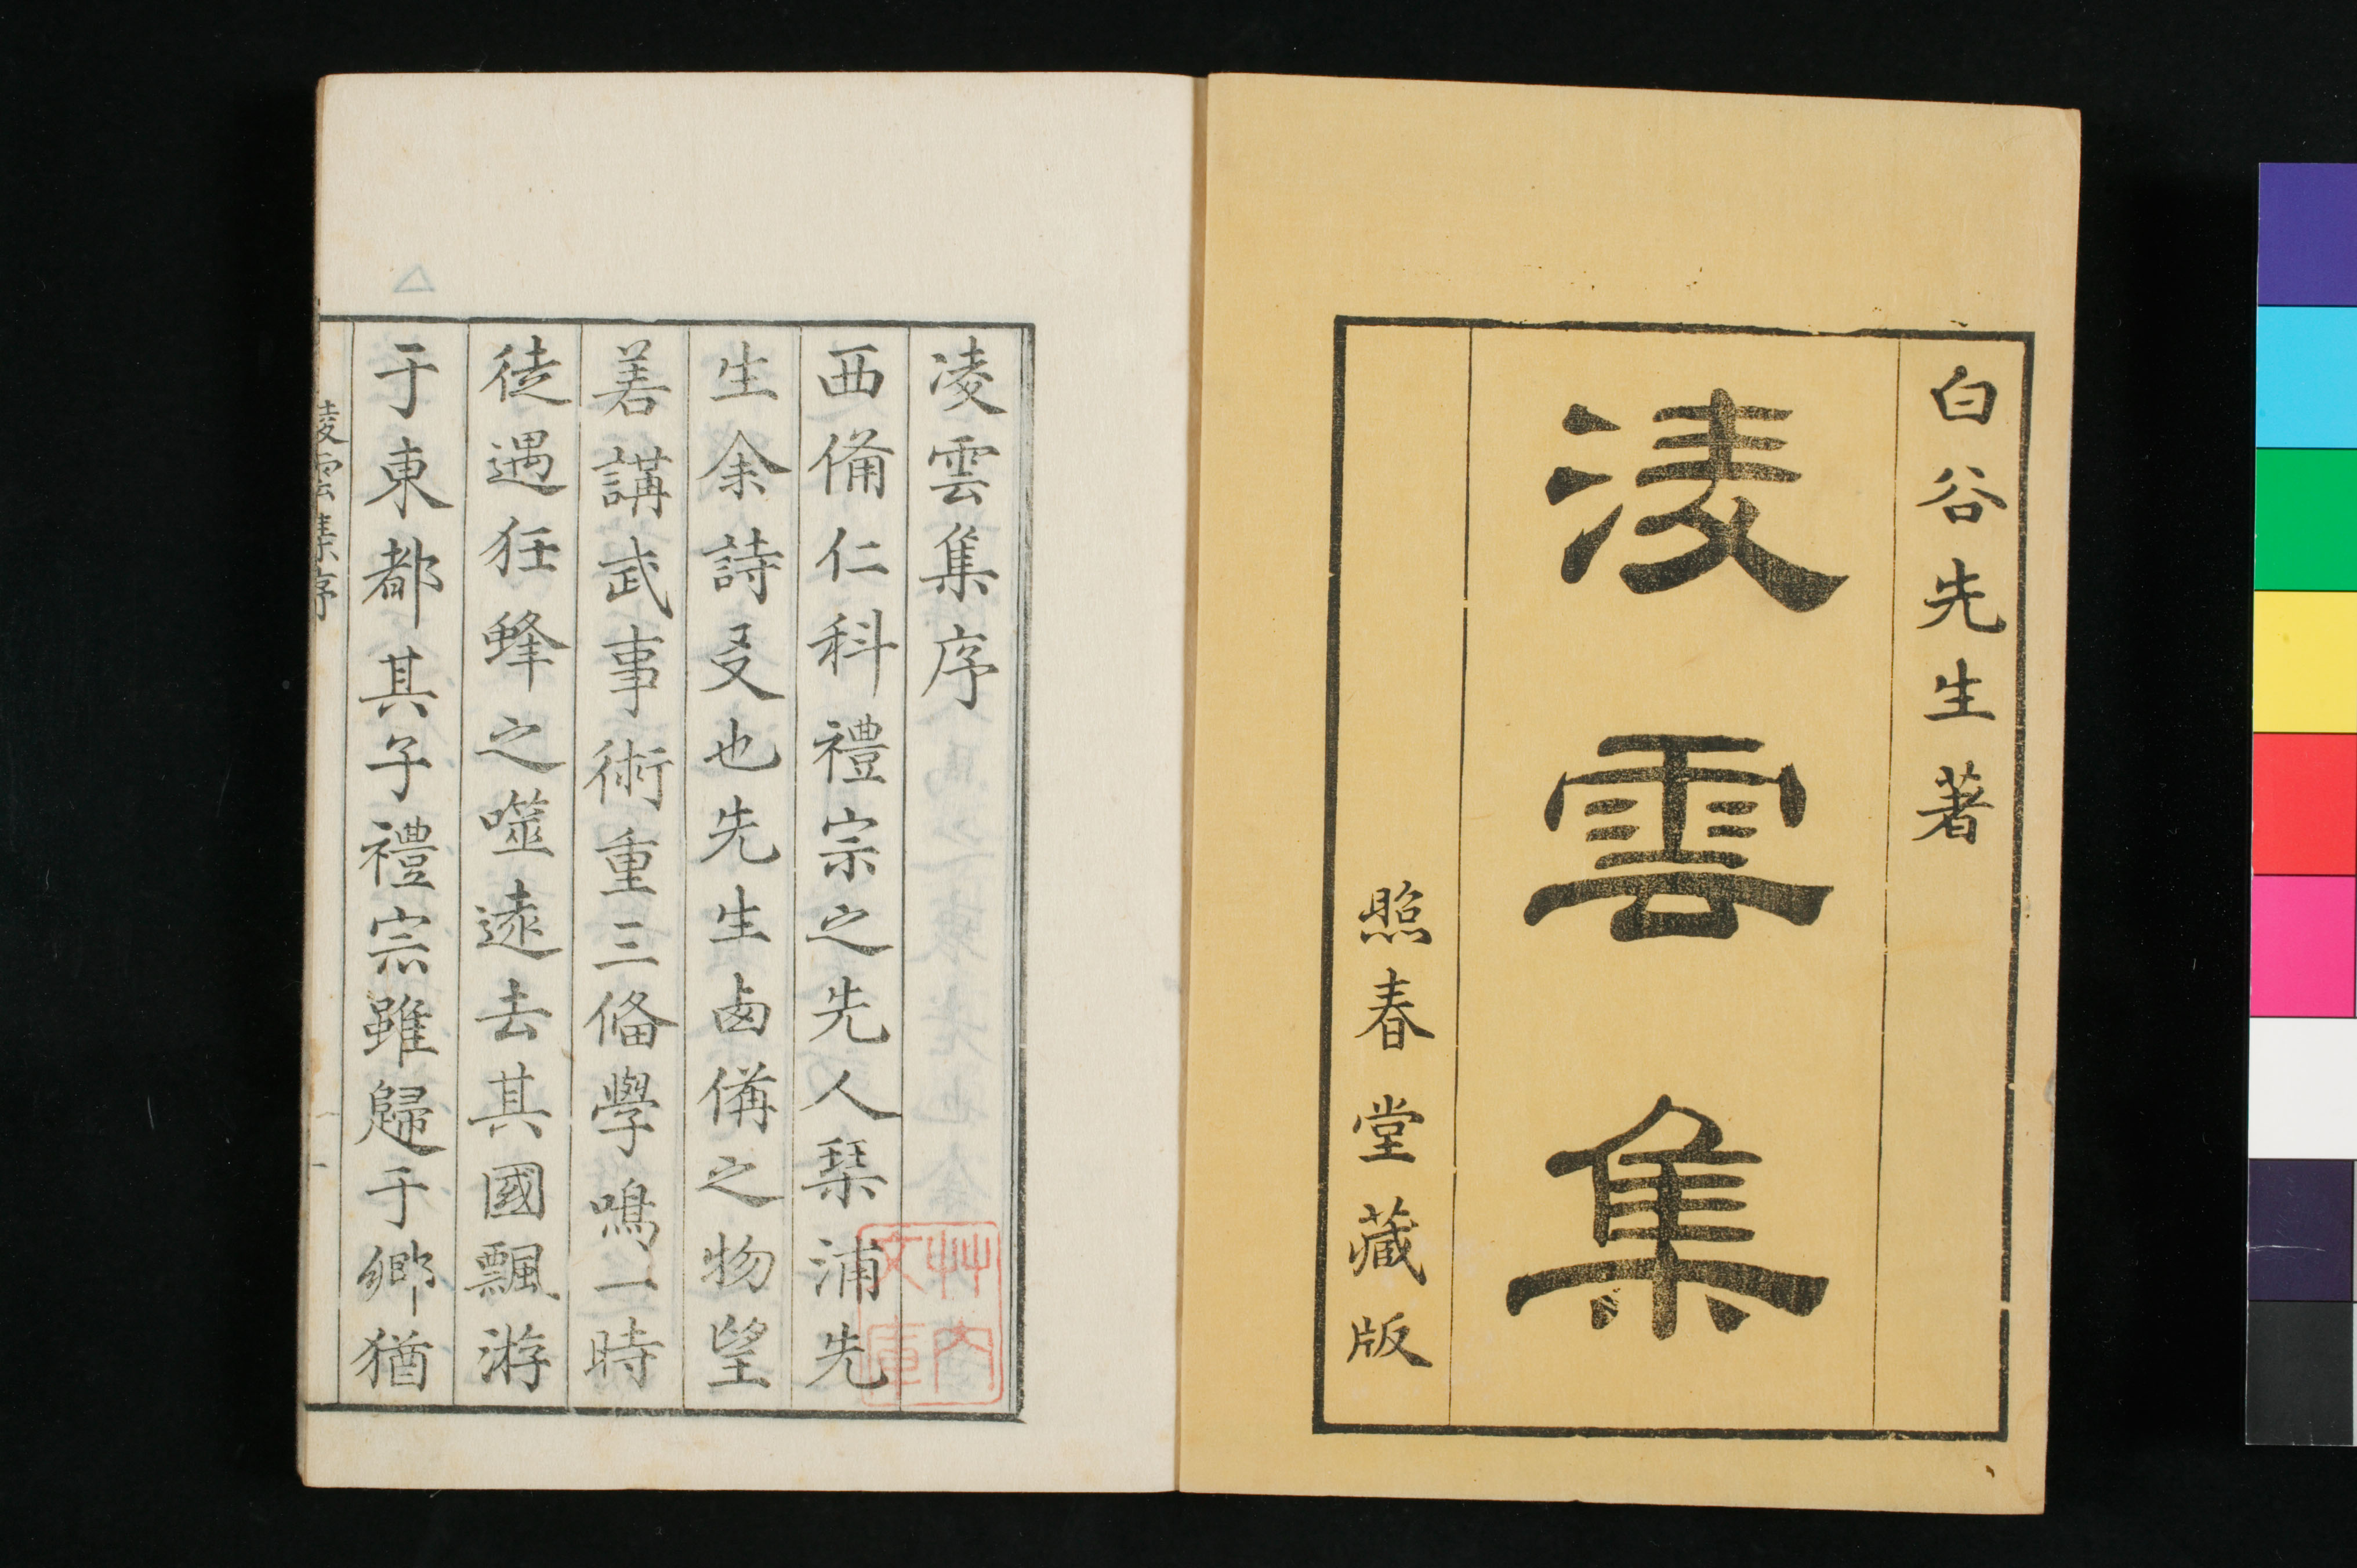 白谷先生著
凌雲集
照春堂藏版
凌雲集序
西備仁科禮宗之先人琹浦先
生余詩叐也先生鹵備之物望
善講武事術重三俻學鳴一時
徒遇狂蜂之噬遠去其國飄游
于東都其子禮宗雖歸于鄉猶
凌雲集序
艸內
文庫